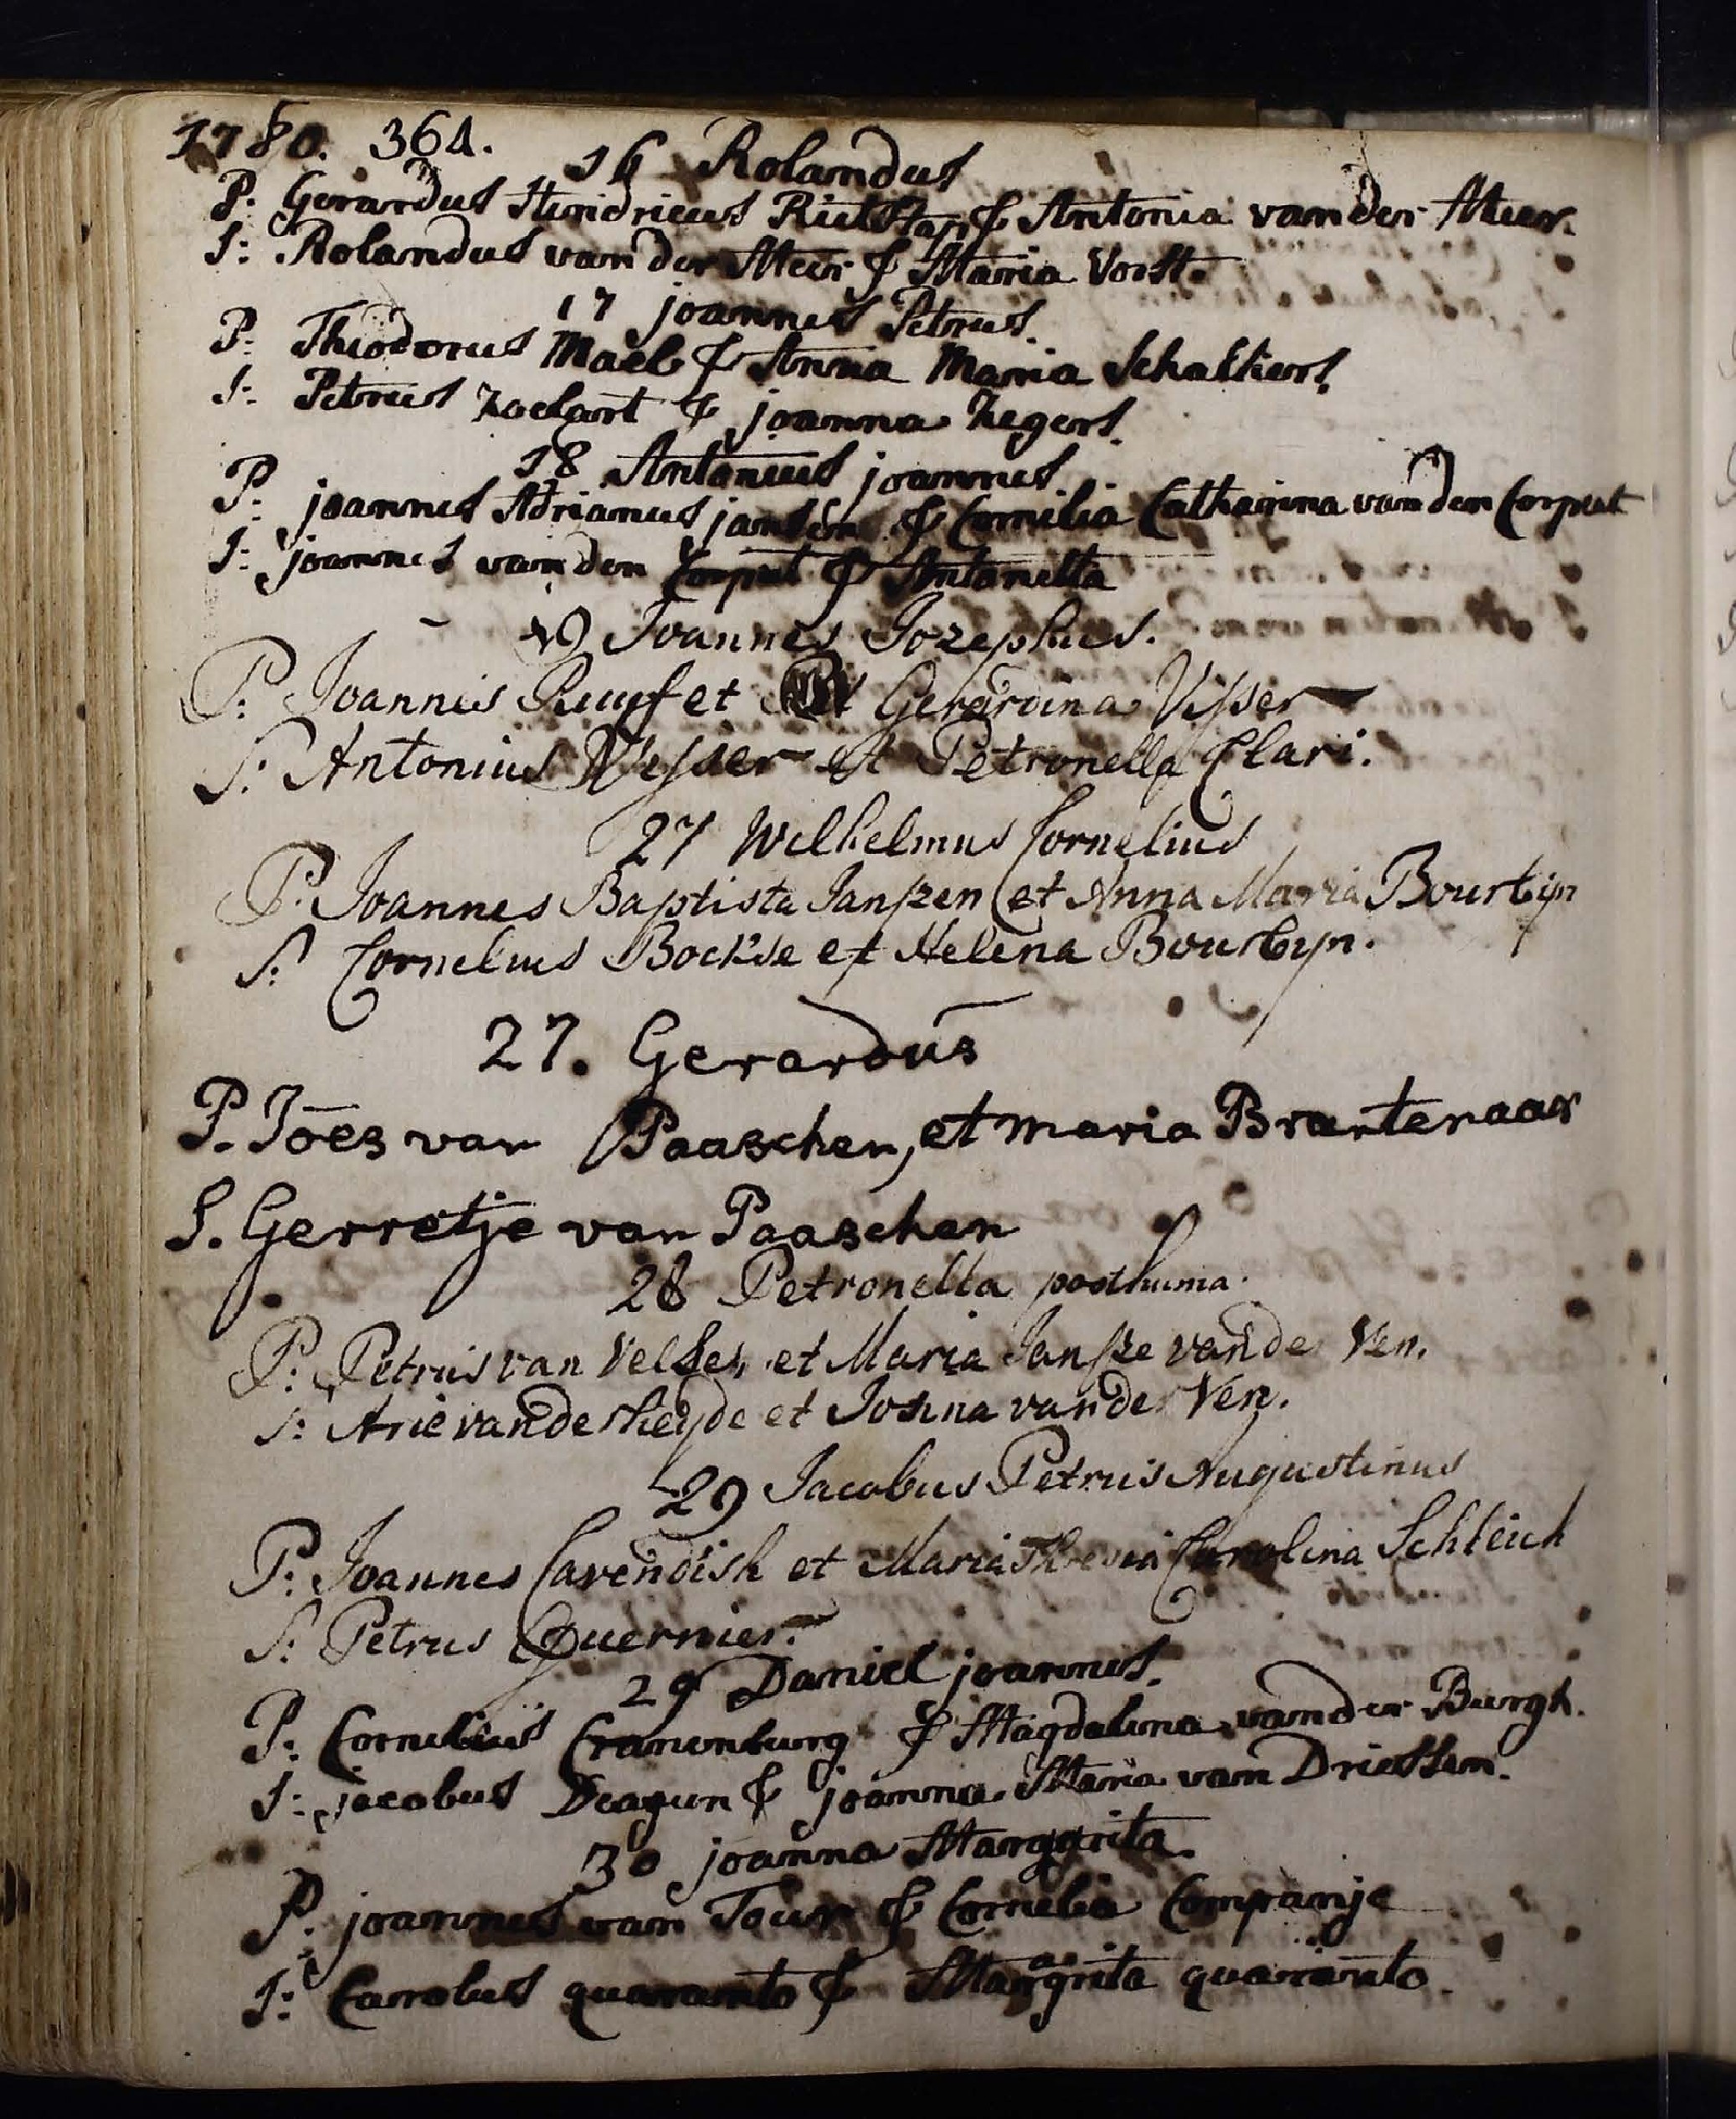 1780. 364.
16 Rolandus
P: Gerardus Hendricus Rietstap & Antonia van der Meer.
S: Rolandus van der Meer & Maria Vorst.
17 joannes Petrus.
P: Theodorus Maeb & Anna Maria Schalkers.
S: Petrus Zoelart & joanna Zegers.
18 Antonius joannes
P: joannes Adrianus jansen & Cornelia Catharina van den Corput
S: joannes van den Corput & Antonetta
19 Joannes Jozephus.
P: Joannis Ruyf et Gerardina Visser
S: Antonius Visser et Petronella Clari.
27 Wilhelmus Cornelius
P. Joannes Baptista Janszen et Anna Maria Bourbyn
S: Cornelius Bockse et Helena Bourbyn.
27. Gerardus
P. Joes van Paaschen, et maria Brantenaar
S. Gerretje van Paaschen
28 Petronella posthuma.
P: Petrus van Velsen et Maria Jansze van de Ven.
S: Arie van der heyde et Josina van de Ven.
29 Jacobus Petrus Augustinus
P: Joannes Cavendish et Maria Theresia Carolina Schleich
S: Petrus Quernier.
29 Daniel joannes.
P: Cornelius Cranenburg & Magdalena van der Burgh.
S: jacobus Deagen & joanna Maria van Driessen.
30 joanna Margarita.
P. joannes van Tour & Cornelia Companje
S: Carolus quaranto & Margarita quaranto.